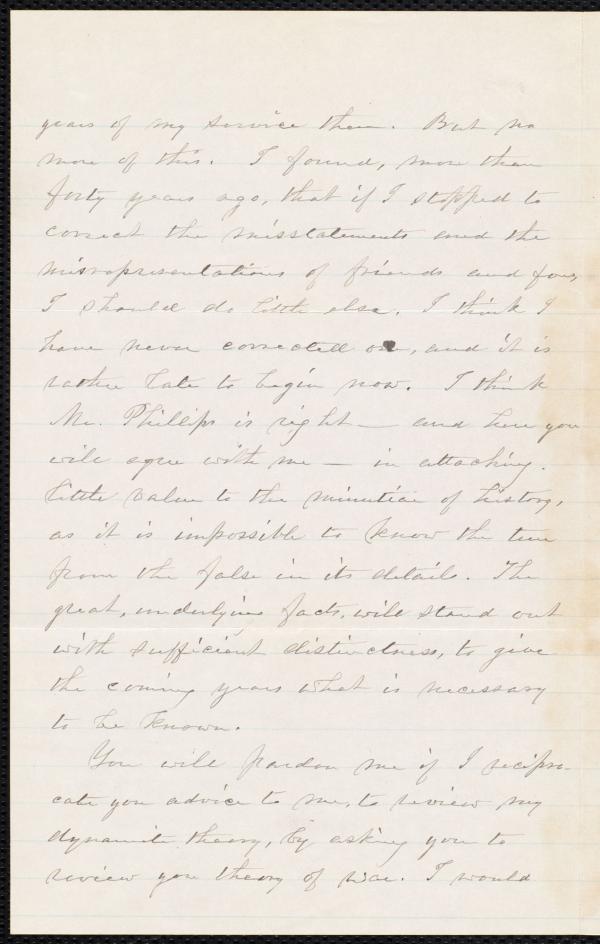 years of my service there. But no
more of this. I found, more than
forty years ago, that if I stopped to
correct the misstatements and the
misrepresentations of friends and foes,
I should do little else. I think I
have never corrected one, and it is
rather late to begin now. I think
Mr. Phillips is right — and here you
will agree with me — in attaching
little value to the minutiae of history,
as it is impossible to know the true
from the false in its details. The
great, underlying facts, will stand out
with sufficient distinctness, to give
the coming years what is necessary
to be known.
You will pardon me if I recipro-
cate your advice to me, to review my
dynamite theory, by asking you to
review your theory of war. I would